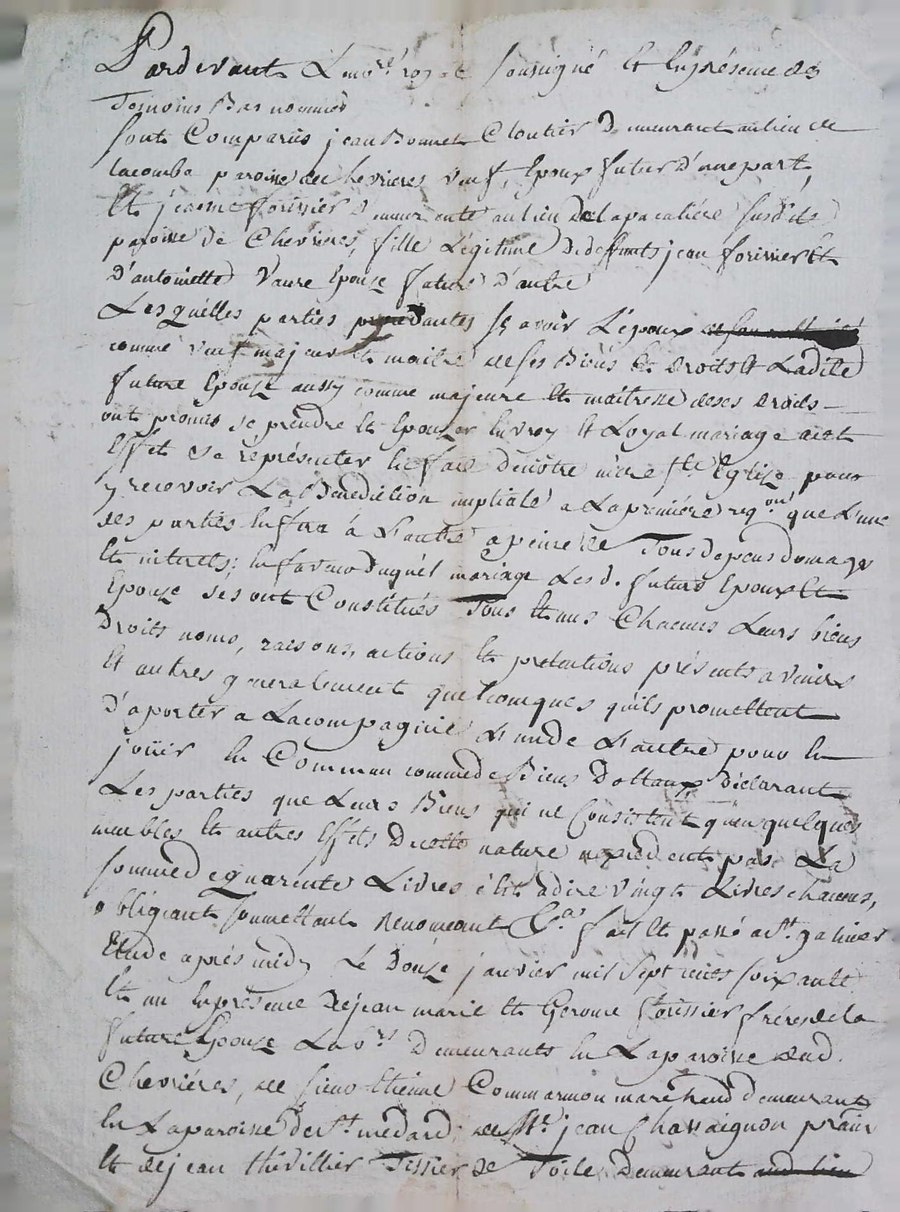 Pardevant Le no.re roy.l soussigné Et En présence des
Temoins Bas nommés
sont Comparus jean Bonnet Cloutier Demeurant au lieu de
lacomba paroisse de chevrieres veuf, Epoux futur D'une part,
Et jeanne forissier Demeurante au lieu De lapacalière susdite
paroisse De Chevrieres, fille Légitime De deffunts jean forissier Et
D'antoinette Vaure Epouse future D'autre
Lesquelles parties procédantes sçavoir L'époux
comme veuf majeur Et maitre de ses Biens Et Droits Et Ladite
future Epouse aussy comme majeure Et maitresse de ses Droits
ont promis se prendre Et Epouser En vray Et Loyal mariage a cet
Effet se représenter En face De nôtre mère s.te Eglise pour
y recevoir La Benediction nuptiale a La première req.on que L'une
des parties En fera à L'autre a peine De Tous depens domages
Et interets; En faveur Duquel mariage Lesd. futurs Epoux Et
Epouse se sont Constitués Tous Et uns Chacuns Leurs biens
Droits noms, raisons, actions Et pretentions présents a venirs
Et autres generalement quelconques qu'ils promettent
D'aporter a La compagnie L'un de L'autre pour En
joüir En Commun comme de Biens Dottaux Déclarant
Les parties que Leurs Biens qui ne Consistent qu'en quelques
meubles Et autres Effets De cette nature n'excedent pas La
somme de quarente Livres c'est a dire vingt Livres chacuns,
obligeant soumettant Renonceant &.a fait Et passé a s.t galmier
Etude après midy Le Douze janvier mil sept cents soixante
Et un En présence De jean marie Et Gerome forissier frères de la
future Epouse Lab.rs Demeurants En La paroisse dud.
Chevriéres, de sieur Etienne Commarmon marchand demeurant
En La paroisse de s.t medard; de s.r jean Chassaignon prat.n
Et de jean thevillier Tissier De Toile Demeurant au lieu